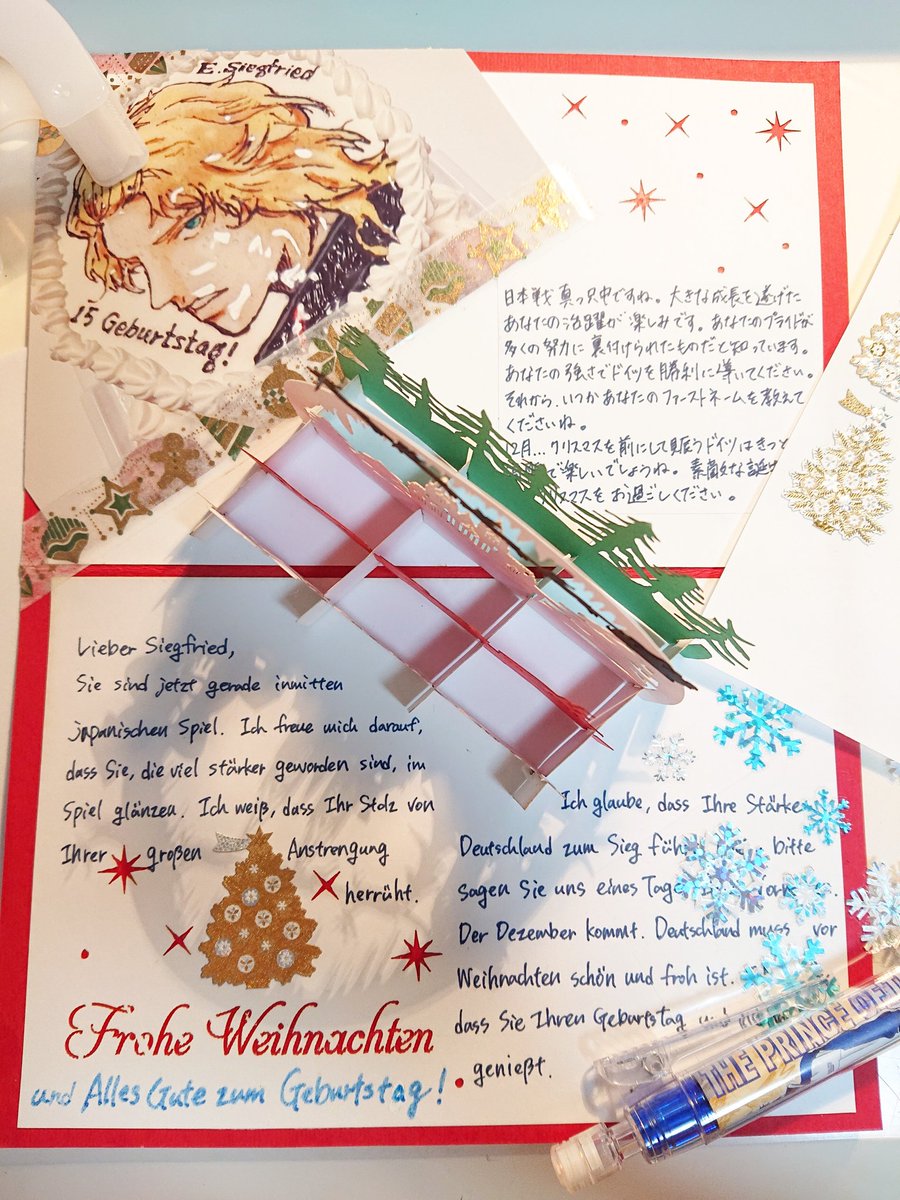 E.Siegfried
15 Geburtstag!
日本戦真っ只中ですね。大きな成長を遂げた
あなたの活躍が楽しみです。あなたのプライドが
多くの努力に裏付けられたものだと知っています。
あなたの強さでドイツを勝利に導いてください。
それから、いつかあなたのファーストネームを教えて
くださいね。
12月…クリスマスを前にして賑うドイツはきっと
で楽しいでしょうね。素敵な誕
スマスをお過ごしください。
Lieber Siegfried,
Sie sind jetzt gerade inmitten
japanischen Spiel. Ich freue mich darauf,
dass Sie, die viel stärker geworden sind, im
Spiel glänzen. Ich weiß, dass Ihr Stolz von
Ihrer großen Anstrengung
herrüht.
Frohe Weihnachten
und Alles Gute zum Geburtstag!
Ich glaube, dass Ihre Stärke
Deutschland zum Sieg füh bitte
sagen Sie uns eines Tage
Der Dezember kommt. Deutschland muss vor
Weihnachten schön und froh ist.
dass Sie Ihren Geburtstag und
genießt.
THE PRINCE OF